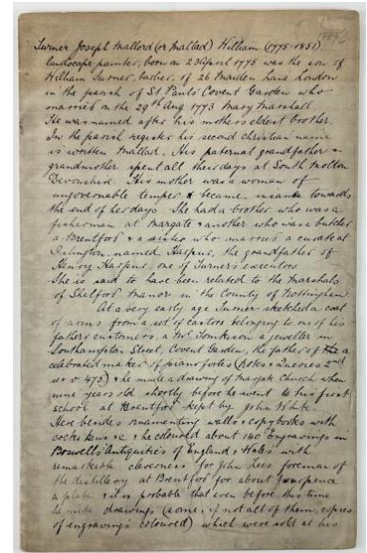 Turner Joseph Mallord (or Mallad) William (1775-1851)
landscape painter, born on 23 April 1775 was the son of
William Turner, barber, of 26 Maiden Lane London
in the parish of St Pauls Covent Garden who
married on the 29th Aug 1773 Mary Marshall.
He was named after his mothers eldest brother.
In the parish register his second christian name
is written Mallad. His paternal grandfather &
grandmother spent all their days at South Molton
Devonshire. His mother was a woman of
ungovernable temper & became insane towards
the end of her days. She had a brother who was a
fisherman at Margate & another who was a butcher
a Brentford & a sister who married a curate at
Islington named Harpur, the grandfather of
Henry Harpur one of Turner's executors
She is said to have been related to the Marshalls
of Shelford Manor in the County of Nottingham
At a very early age Turner sketched a coat
of arms from a set of castors belonging to one of his
father's customers, a Mr Tomkison a jeweller in
Southampton Street, Covent Garden, the father of a
celebrated maker of pianofortes (Notes & Queries 2nd
ser v 475) & he made a drawing of Margate Church when
nine years old shortly before he went to his first
school at Brentford kept by John White
Here besides ornamenting walls & copybooks with
cocks & hens &c he coloured about 140 Engravings in
Boswell's Antiquities of England & Wales with
remarkable cleverness for John Lees foreman of
the distillery at Brentford for about fourpence
a plate & it is probable that even before this time
he made drawings (some, if not all of them, copies
of engravings coloured) which were sold at his